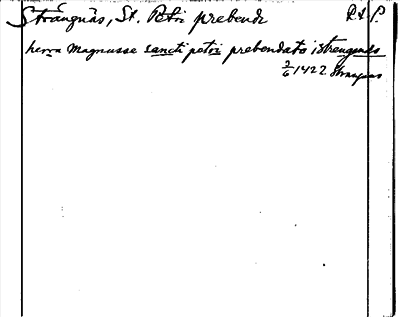 Strängnäs, St. Petri prebende R.A.P.
herra Magnusse sancti petri prebendato i strengenæs
2/6 1422 Strängnäs